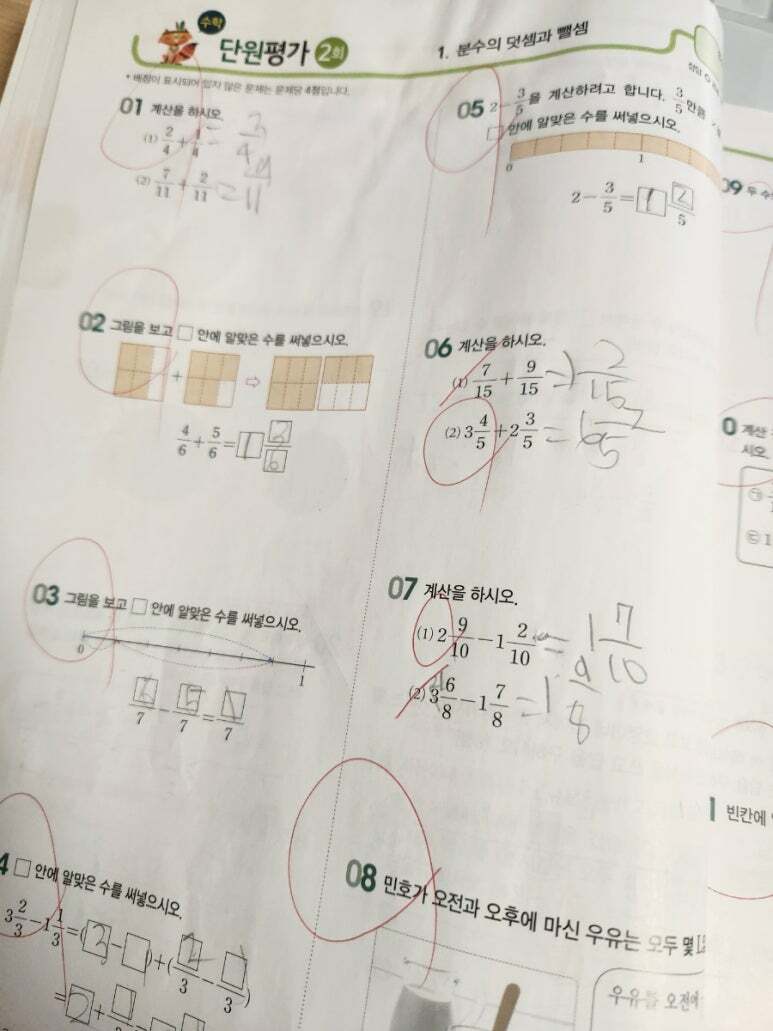 수학
단원평가 2회
1. 분수의 덧셈과 뺄셈
* 배점이 표시되어 있지 않은 문제는 문제당 4점입니다.
01 계산을 하시오.
(1) 2/4 + 1/4 = 3/4
(2) 7/11 + 2/11 =
02 그림을 보고 □ 안에 알맞은 수를 써넣으시오.
4/6 + 5/6 = 1 3/6
03 그림을 보고 □ 안에 알맞은 수를 써넣으시오.
0 1
6/7 - 5/7 = 1/7
4 □ 안에 알맞은 수를 써넣으시오.
3 2/3 - 1 1/3 = (3 - □) + (2/3 - □/3)
05 2 - 3/5 을 계산하려고 합니다. 3/5 만큼
□ 안에 알맞은 수를 써넣으시오.
0 1
2 - 3/5 = 1 2/5
06 계산을 하시오.
(1) 7/15 + 9/15 = 1 2/15
(2) 3 4/5 + 2 3/5 = 6 2/5
07 계산을 하시오.
(1) 2 9/10 - 1 2/10 = 1 7/10
(2) 3 6/8 - 1 7/8 = 1 9/8
08 민호가 오전과 오후에 마신 우유는 모두 몇
우유를 오전에
09 두 수
0 계산
시오.
㉠
㉢ 1
1 빈칸에